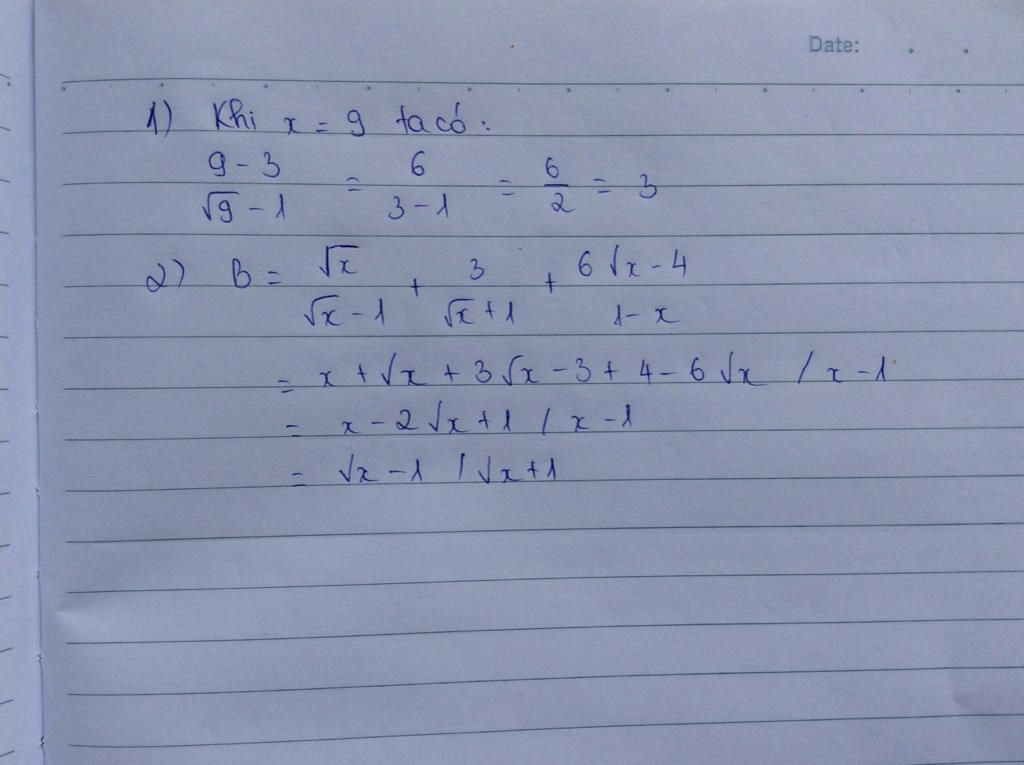 Date:
1) Khi x = 9 ta có :
9 - 3 / √9 - 1 = 6 / 3 - 1 = 6 / 2 = 3
2) B = √x / √x - 1 + 3 / √x + 1 + 6√x - 4 / 1 - x
= x + √x + 3√x - 3 + 4 - 6√x / x - 1
= x - 2√x + 1 / x - 1
= √x - 1 / √x + 1